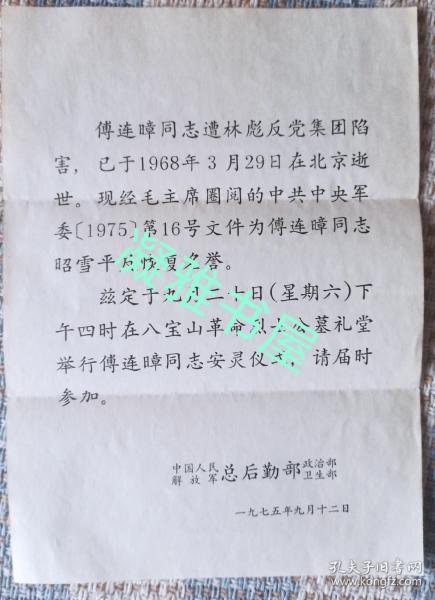 傅连暲同志遭林彪反党集团陷
害，已于1968年3月29日在北京逝
世。现经毛主席圈阅的中共中央军
委〔1975〕第16号文件为傅连暲同志
昭雪平反恢复名誉。
兹定于九月二十日(星期六)下
午四时在八宝山革命烈士公墓礼堂
举行傅连暲同志安灵仪式，请届时
参加。
中国人民解放军 总后勤部 政治部 卫生部
一九七五年九月十二日
凝雅书屋
孔夫子旧书网